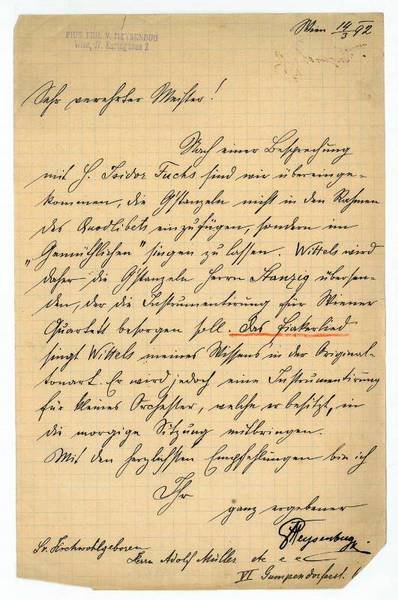 PIUS FHR. V. MEYSENBUG
Wien 14/3 92
Wien,
Sehr verehrter Meister!
Nach einer Besprechung
mit H. Isidor Fuchs sind wir übereinge-
kommen, die Gstanzeln nicht in den Rahmen
des Quodlibets einzufügen, sondern im
„Gemüthlichen" singen zu lassen. Wittels wird
daher die Gstanzeln Herrn Stanzig übersen-
den, der die Instrumentirung für Wiener
Quartett besorgen soll. Das Fiakerlied
singt Wittels meines Wissens in der Original-
tonart. Er wird jedoch eine Instrumentirung
für kleines Orchester, welche er besitzt, in
die morgige Sitzung mitbringen.
Mit den herzlichsten Empfehlungen bin ich
Ihr
ganz ergebener
Meysenbug
Sr. Hochwohlgeboren
Herrn Adolf Müller etc
VI Gumpendorferst.